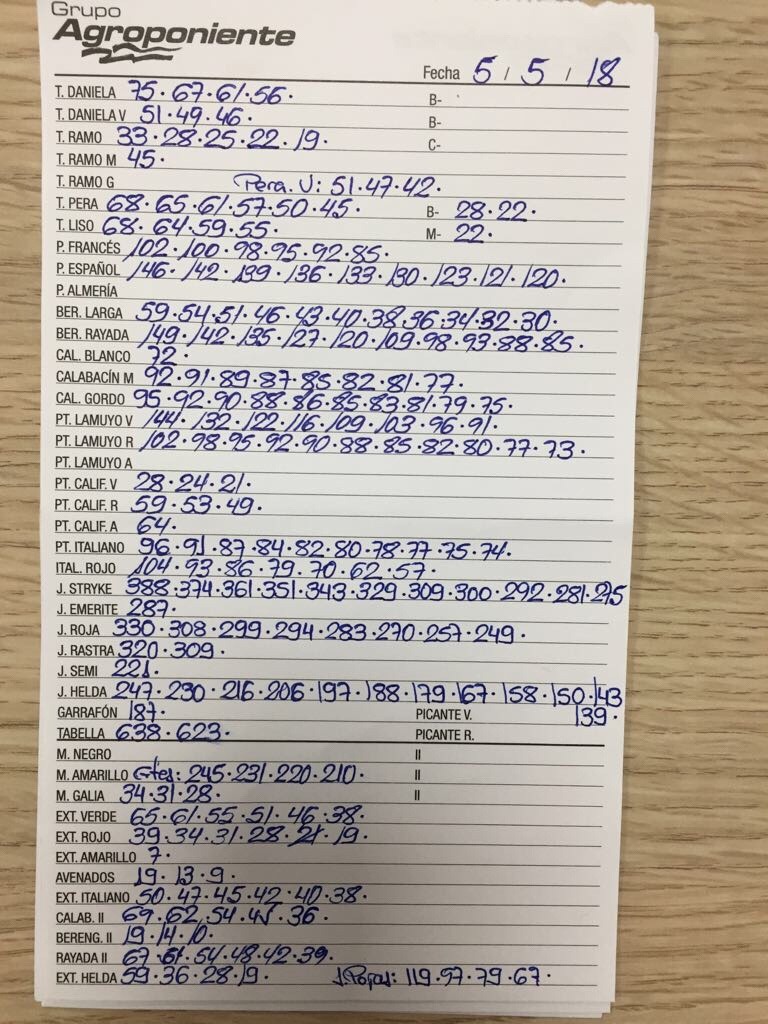 Grupo
Agroponiente
Fecha 5 / 5 / 18
T. DANIELA 75·67·61·56· B-
T. DANIELA V 51·49·46· B-
T. RAMO 33·28·25·22·19· C-
T. RAMO M 45·
T. RAMO G Pera. V: 51·47·42·
T. PERA 68·65·61·57·50·45· B- 28·22·
T. LISO 68·64·59·55· M- 22·
P. FRANCÉS 102·100·98·95·92·85·
P. ESPAÑOL 146·142·139·136·133·130·123·121·120·
P. ALMERÍA
BER. LARGA 59·54·51·46·43·40·38·36·34·32·30·
BER. RAYADA 149·142·135·127·120·109·98·93·88·85·
CAL. BLANCO 72·
CALABACÍN M 92·91·89·87·85·82·81·77·
CAL. GORDO 95·92·90·88·86·85·83·81·79·75·
PT. LAMUYO V 144·132·122·116·109·103·96·91·
PT. LAMUYO R 102·98·95·92·90·88·85·82·80·77·73·
PT. LAMUYO A
PT. CALIF. V 28·24·21·
PT. CALIF. R 59·53·49·
PT. CALIF. A 64·
PT. ITALIANO 96·91·87·84·82·80·78·77·75·74·
ITAL. ROJO 104·93·86·79·70·62·57·
J. STRYKE 388·374·361·351·343·329·309·300·292·281·275
J. EMERITE 287·
J. ROJA 330·308·299·294·283·270·257·249·
J. RASTRA 320·309·
J. SEMI 221·
J. HELDA 247·230·216·206·197·188·179·167·158·150·143
GARRAFÓN 187· PICANTE V. 139·
TABELLA 638·623· PICANTE R.
M. NEGRO II
M. AMARILLO Gtes: 245·231·220·210· II
M. GALIA 34·31·28· II
EXT. VERDE 65·61·55·51·46·38·
EXT. ROJO 39·34·31·28·21·19·
EXT. AMARILLO 7·
AVENADOS 19·13·9·
EXT. ITALIANO 50·47·45·42·40·38·
CALAB. II 69·62·54·45·36·
BERENG. II 19·14·10·
RAYADA II 67·61·54·48·42·39·
EXT. HELDA 59·36·28·19· 119·97·79·67·